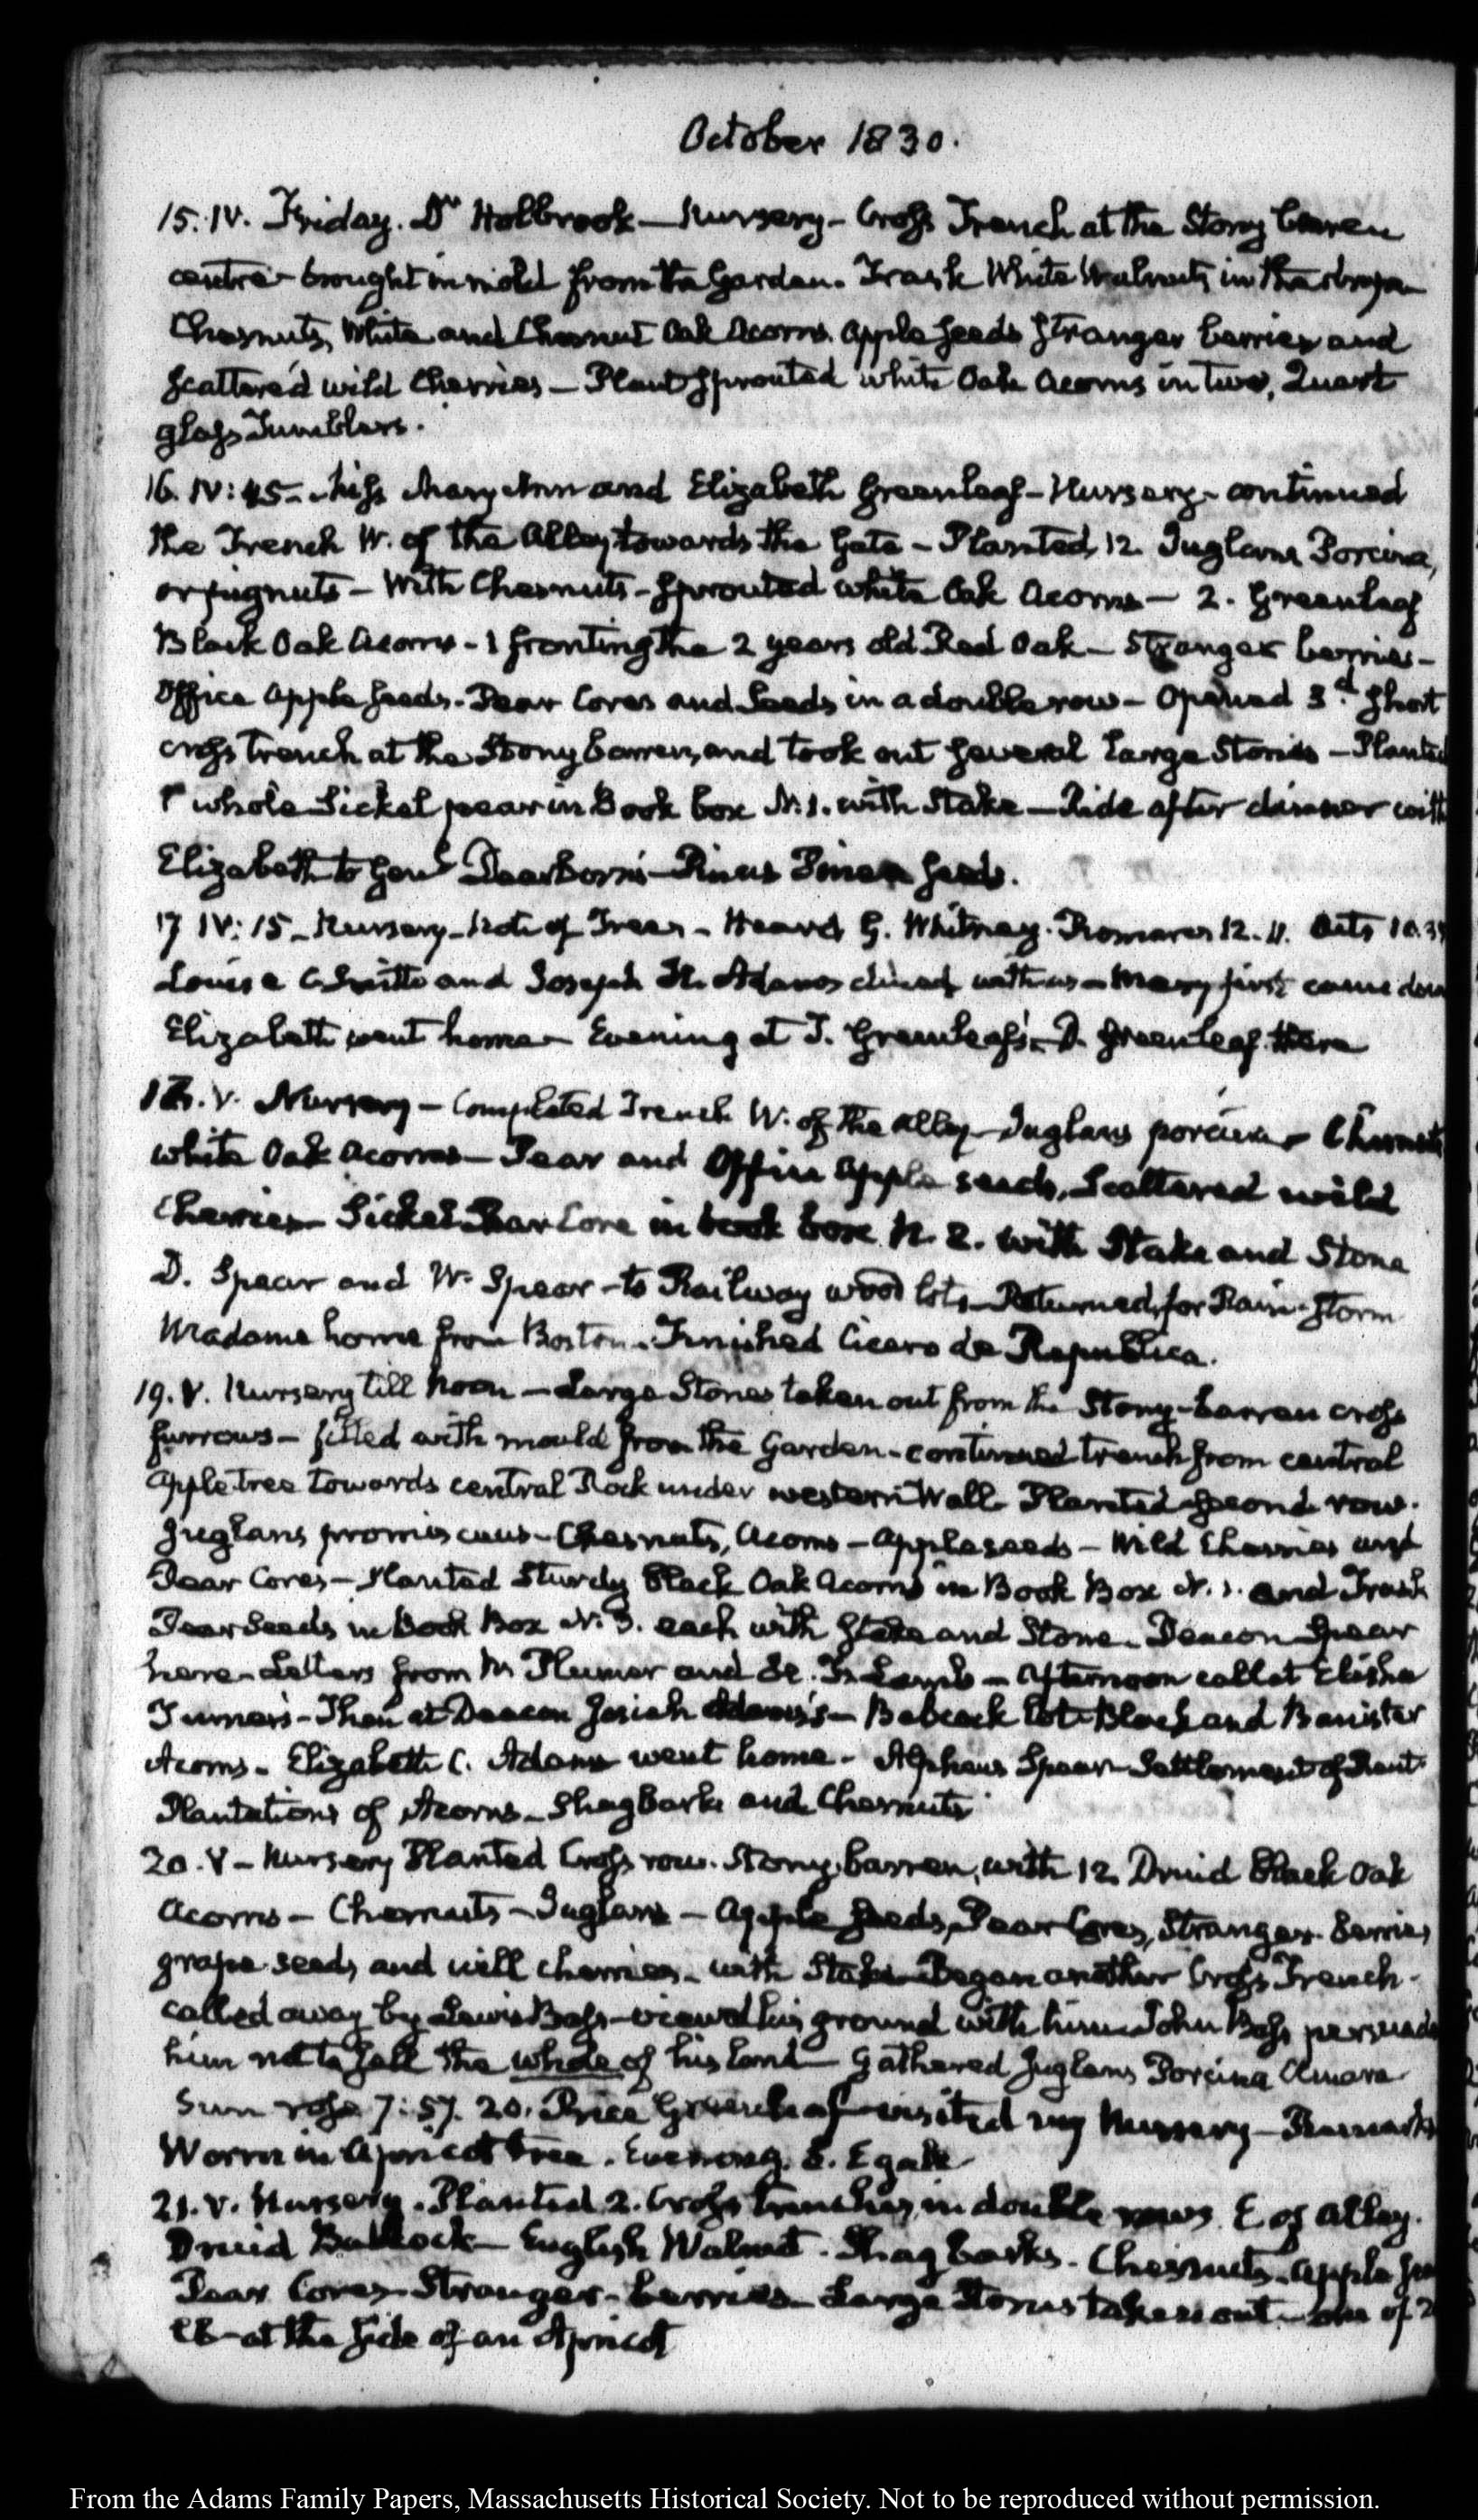 October 1830.
15. IV. Friday. Dr Holbrook — Nursery — Cross Trench at the Stony barren
centre — brought in mold from the Garden. Trask White Walnuts in the
Chesnuts, White and Chesnut Oak Acorns. Apple seeds Stranger berries and
scattered wild Cherries — Plant sprouted white Oak Acorns in two, Quart
glass Tumblers.
16. IV: 45. Miss Mary Ann and Elizabeth Greenleaf — Nursery — continued
the Trench W. of the Alley towards the Gate — Planted 12. Juglans Porcina,
or pignuts — With Chesnuts — sprouted white Oak Acorns — 2. Greenleaf
Black Oak Acorns — 1 fronting the 2 years old Red Oak — Stranger berries —
Office Apple seeds. Pear Cores and Seeds in a double row — Opened 3d. short
cross trench at the Stony barren, and took out several large Stones — Planted
1 whole Sickel pear in Book box N. 1. with Stake — Ride after dinner with
Elizabeth to Genl Dearborn's — Pinus Pinea seeds.
17 IV: 15 — Nursery — Note of Trees — Heard G. Whitney. Romans 12. 11. Acts 10.
Louisa C. Smith and Joseph H. Adams dined with us — Mary first came down
Elizabeth went home — Evening at T. Greenleaf's — D. Greenleaf there
18. V. Nursery — Completed Trench W. of the Alley — Juglans porcina — Chesnuts
white Oak Acorns — Pear and Office Apple seeds, Scattered wild
Cherries — Sickel Pear Core in book box N. 2. with Stake and Stone
D. Spear and W. Spear — to Railway wood lots — Returned for Rain-Storm
Madame home from Boston. Finished Cicero de Republica.
19. V. Nursery till Noon — Large Stones taken out from the Stony-barren cross
furrows — filled with mould from the Garden — continued trench from central
Apple tree towards central Rock under western Wall. Planted second row.
Juglans promiscuus — Chesnuts, Acorns — Apple seeds — Wild Cherries and
Pear Cores — Planted Sturdy Black Oak Acorns in Book Box N. 1. and Trask
Pear Seeds in Book Box N. 3. each with Stake and Stone. Deacon Spear
here — Letters from Mr Plumer and Lamb — Afternoon call at Elisha
Turner's — Then at Deacon Josiah Adams's — Babcock lot — Black and Banister
Acorns. Elizabeth C. Adams went home — Alpheus Spear — Settlement of Rent
Plantations of Acorns — Shagbarks and Chesnuts
20. V — Nursery Planted Cross row. Stony barren, with 12 Druid Black Oak
Acorns — Chesnuts — Juglans — Apple seeds, Pear Cores, Stranger Berries
grape seeds and wild cherries — with Stake — Began another Cross Trench —
called away by Lewis Bass — viewed his ground with him — John Bass persuade
him not to sell the whole of his land — Gathered Juglans Porcina Amara
Sun rose 7: 57. 20. Price Greenleaf visited my Nursery — Remarks
Worm in Apricot tree. Evening.
21. V. Nursery. Planted 2. Cross trenches, in double rows E of Alley.
Druid Babcock — English Walnut. Shagbarks. Chesnuts. Apple
Pear Cores — Stranger-berries — Large Stones taken out — one of 2
at the side of an Apricot
From the Adams Family Papers, Massachusetts Historical Society. Not to be reproduced without permission.